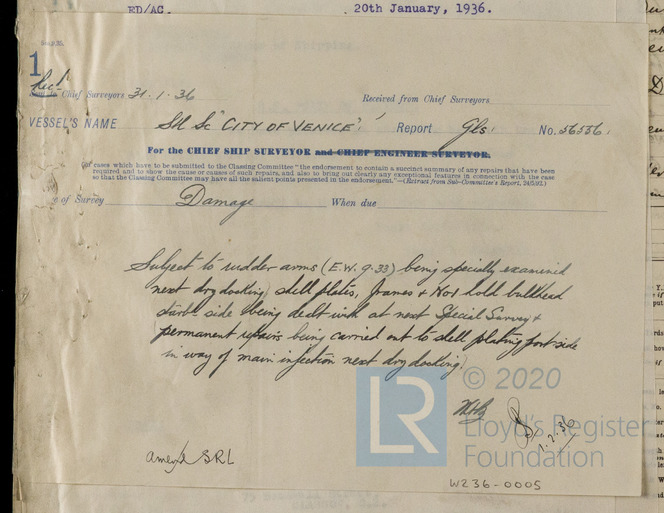 RD/AC.
20th January, 1936.
1
Rec'd
Chief Surveyors 31.1.36
Received from Chief Surveyors
VESSEL'S NAME Stl Sc "CITY OF VENICE" Report Gls. No. 56556.
For the CHIEF SHIP SURVEYOR and CHIEF ENGINEER SURVEYOR.
(In cases which have to be submitted to the Classing Committee "the endorsement to contain a succinct summary of any repairs that have been
required and to show the cause or causes of such repairs, and also to bring out clearly any exceptional features in connection with the case
so that the Classing Committee may have all the salient points presented in the endorsement."—(Extract from Sub-Committee's Report, 24/5/92.)
e of Survey Damage When due
Subject to rudder arms (E.W. 9.33) being specially examined
next dry docking, shell plates, frames & No 1 hold bulkhead
starbd side being dealt with at next Special Survey &
permanent repairs being carried out to shell plating port side
in way of main injection next dry docking.
© 2020
LR
Lloyd's Register
Foundation
1.2.36
SRL
W236-0005